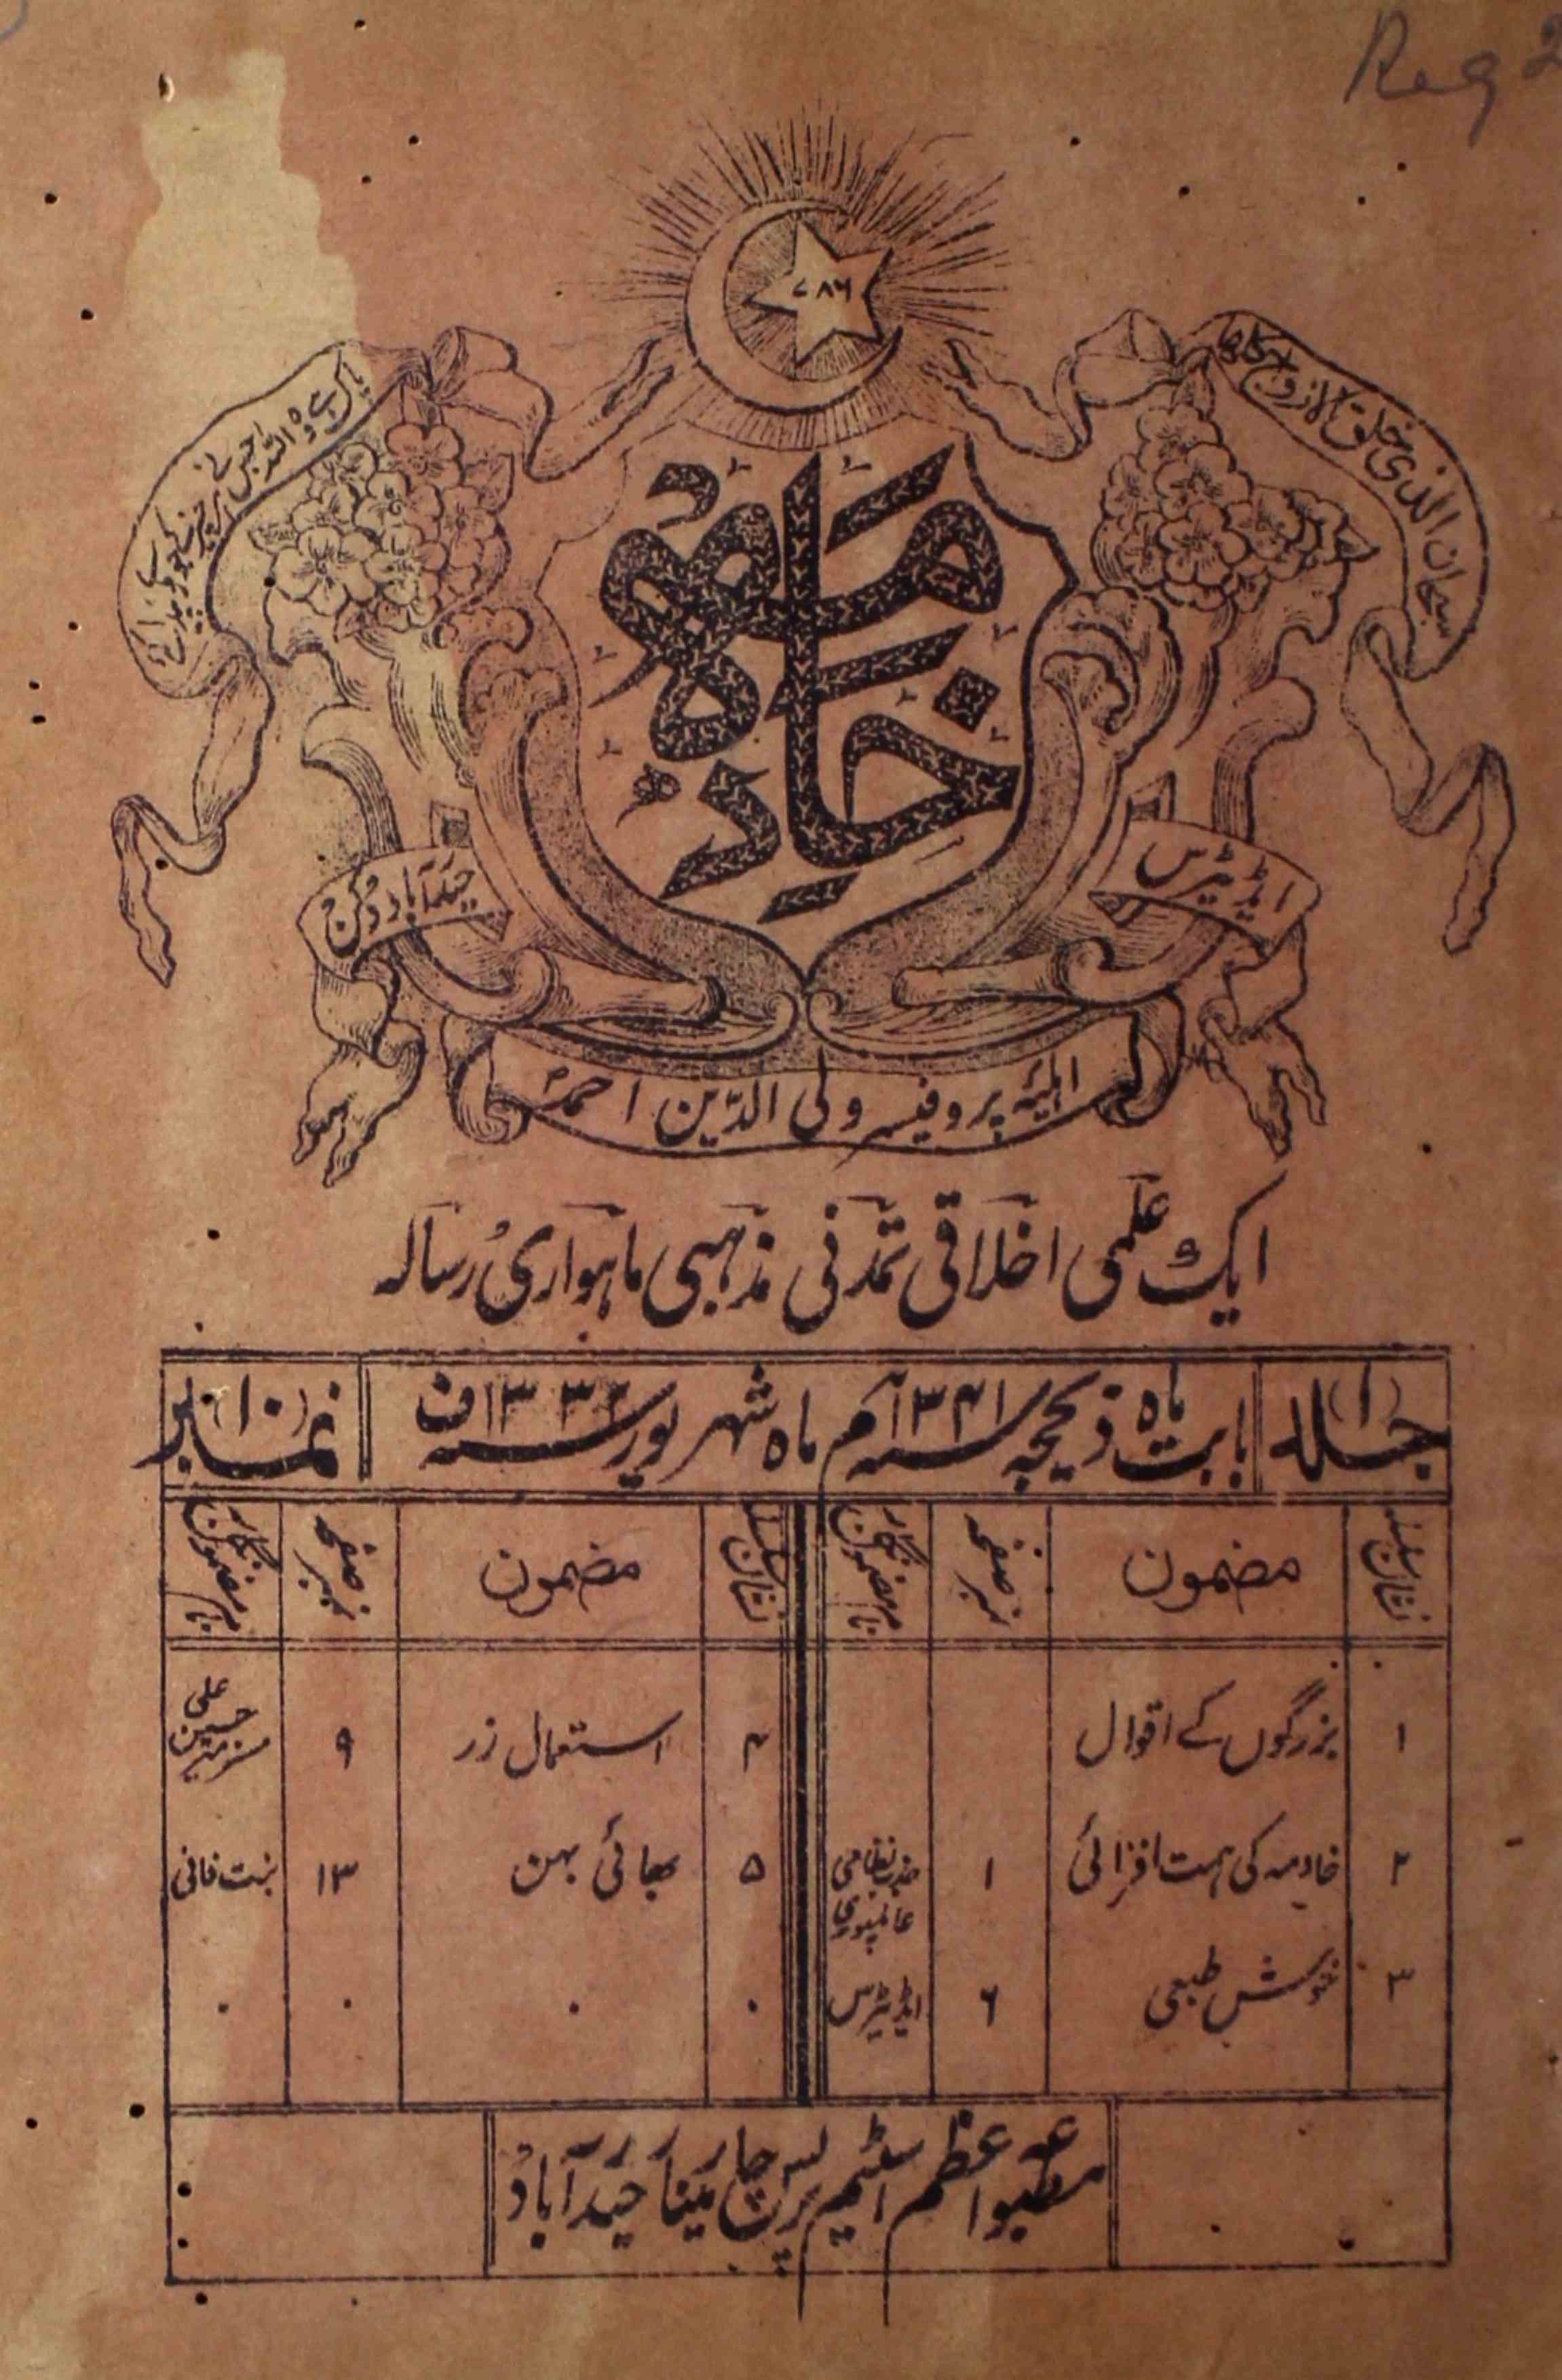 Reg 2
۷۸۶
سبحان الذی خلق الازواج کلها
پاک ہے وہ اللہ جس نے
خادمہ
ایڈیٹرس
حیدرآباد دکن
اہلیۂ پروفیسر ولی الدین احمد
ایک علمی اخلاقی تمدنی مذہبی ماہواری رسالہ
جلد (۱) بابت ماہ ذیحجہ سنہ ۱۳۴۱ م ماہ شہریور سنہ ۱۳۳۲ ف نمبر (۱۰)
نشان سلسلہ مضمون نمبر صفحہ نام مضمون نگار نشان سلسلہ مضمون نمبر صفحہ نام مضمون نگار
۱ بزرگوں کے اقوال ۴ استعمال زر ۹ علی حسین
۲ خادمہ کی ہمت افزائی ۱ نظامی عالمپوری ۵ بھائی بہن ۱۳ بنت فانی
۳ خوش طبعی ۶ ایڈیٹرس
مطبوعہ اعظم اسٹیم پریس چارمینار حیدرآباد